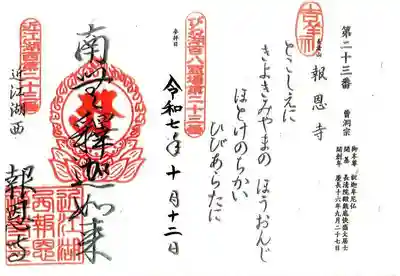 第二十三番
曹洞宗
報恩寺
御本尊 釈迦牟尼仏
開基 長清院殿熊底快盛大居士
開創年 慶長十六年九月二十七日
とこしえに
きよきみやまの ほうおんじ
ほとけのちかい
ひびあらたに
びわ湖百八霊場第二十三番
参拝日
令和七年 十月十二日
南無釋迦如来
近江湖西第二十三番
近江湖西
報恩寺
近江湖西報恩寺